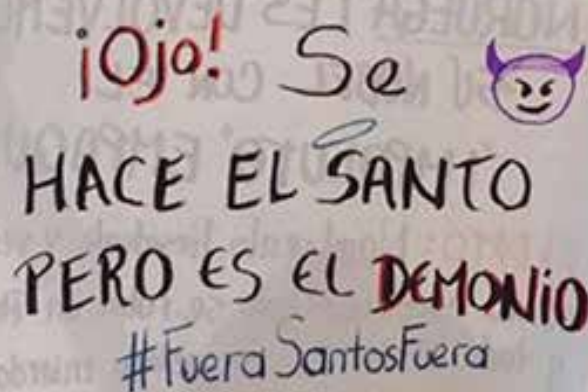 ¡Ojo! Se
HACE EL SANTO
PERO ES EL DEMONIO
#FueraSantosFuera